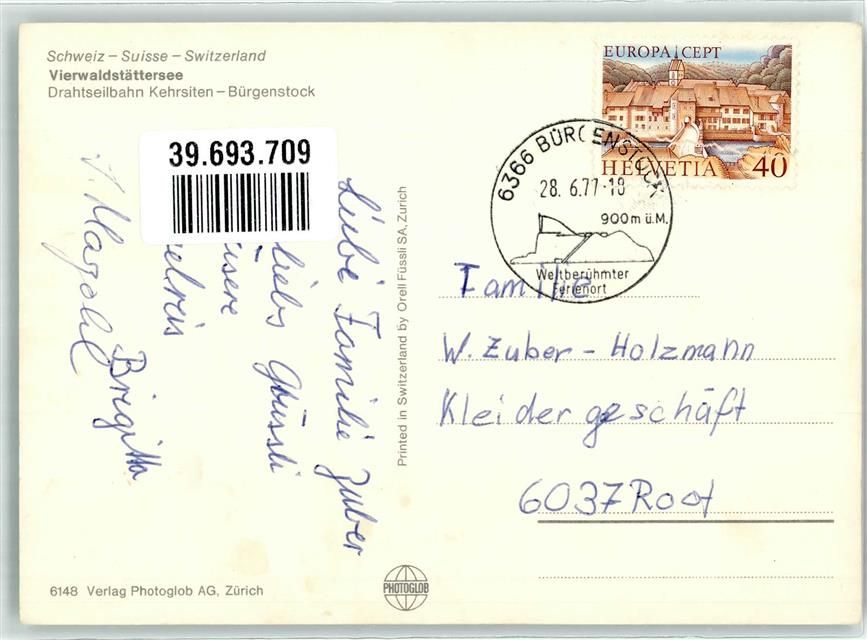 Schweiz – Suisse – Switzerland
Vierwaldstättersee
Drahtseilbahn Kehrsiten – Bürgenstock
39.693.709
Liebe Familie Zuber
liebs Grüssli
Brigitta
Printed in Switzerland by Orell Füssli SA, Zurich
EUROPA CEPT
HELVETIA 40
6366 BÜRGENSTOCK
28. 6.77-18
900m ü.M.
Weltberühmter
Ferienort
Familie
W. Zuber – Holzmann
Kleidergeschäft
6037 Root
6148 Verlag Photoglob AG, Zürich
PHOTOGLOB